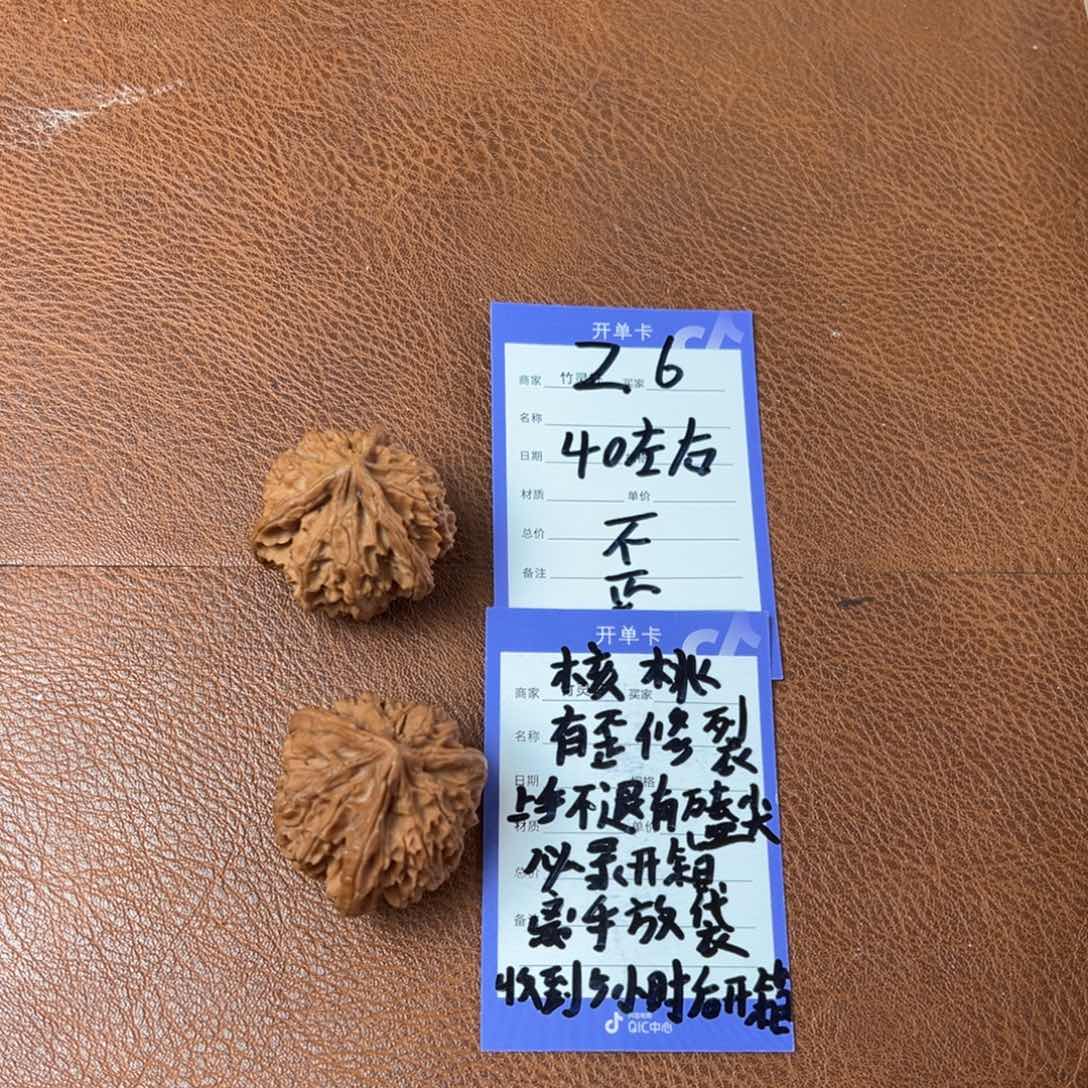 开单卡
2.6
商家 竹灵 买家
名称
40左右
日期
材质 单价
不
总价
备注
开单卡
核桃
商家 买家
有歪修裂
名称
日期 规格
上手不退有磕尖
材质 单价
必录开箱
总价
离手放袋
备
收到5小时后开箱
QIC中心